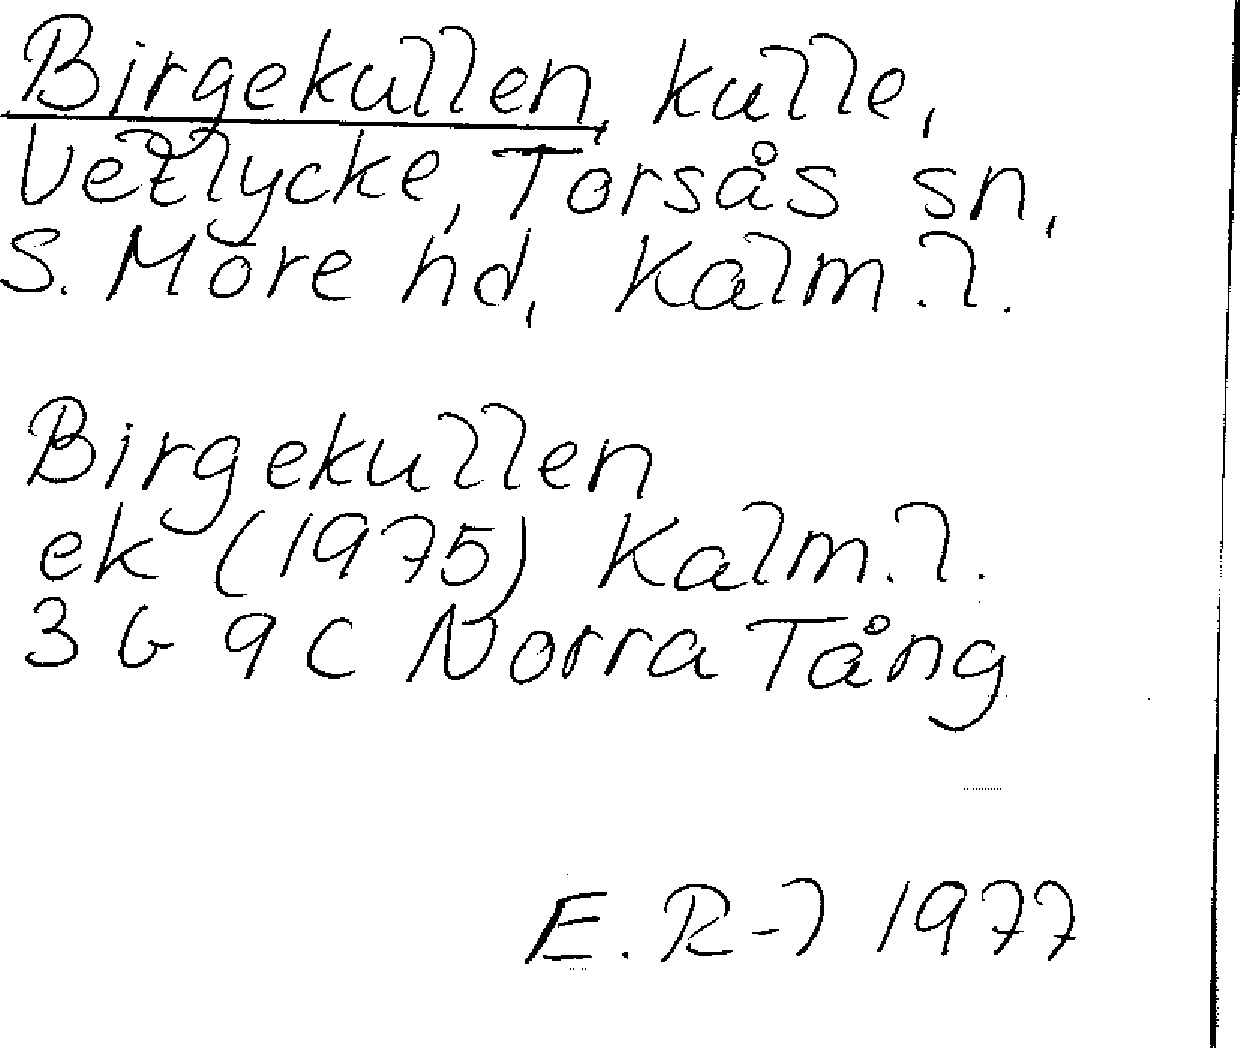 Birgekullen, kulle,
Vetlycke, Torsås sn,
S. Möre hd, Kalm. l.
Birgekullen
ek (1975) Kalm. l.
3 G 9 c Norra Tång
E. R-l 1977